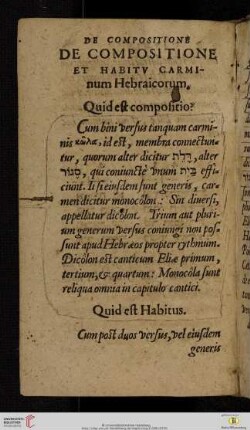 DE COMPOSITIONE
DE COMPOSITIONE
ET HABITV CARMI-
num Hebraicorum.
Quid est compositio?
Cum bini versus tanquam carmi-
nis κῶλα, id est, membra connectun-
tur, quorum alter dicitur דֶּלֶת, alter
סוֹגֵר, qui coniuncte vnum בַּיִת effi-
ciunt. Ii si eiusdem sunt generis, car-
men dicitur monocolon: Sin diuersi,
appellatur dicolon. Trium aut pluri-
um generum versus coniungi non pos-
sunt apud Hebræos propter rythmum.
Dicolon est canticum Eliæ primum,
tertium, & quartum: Monocola sunt
reliqua omnia in capitulo cantici.
Quid est Habitus.
Cum post duos versus, vel eiusdem
generis